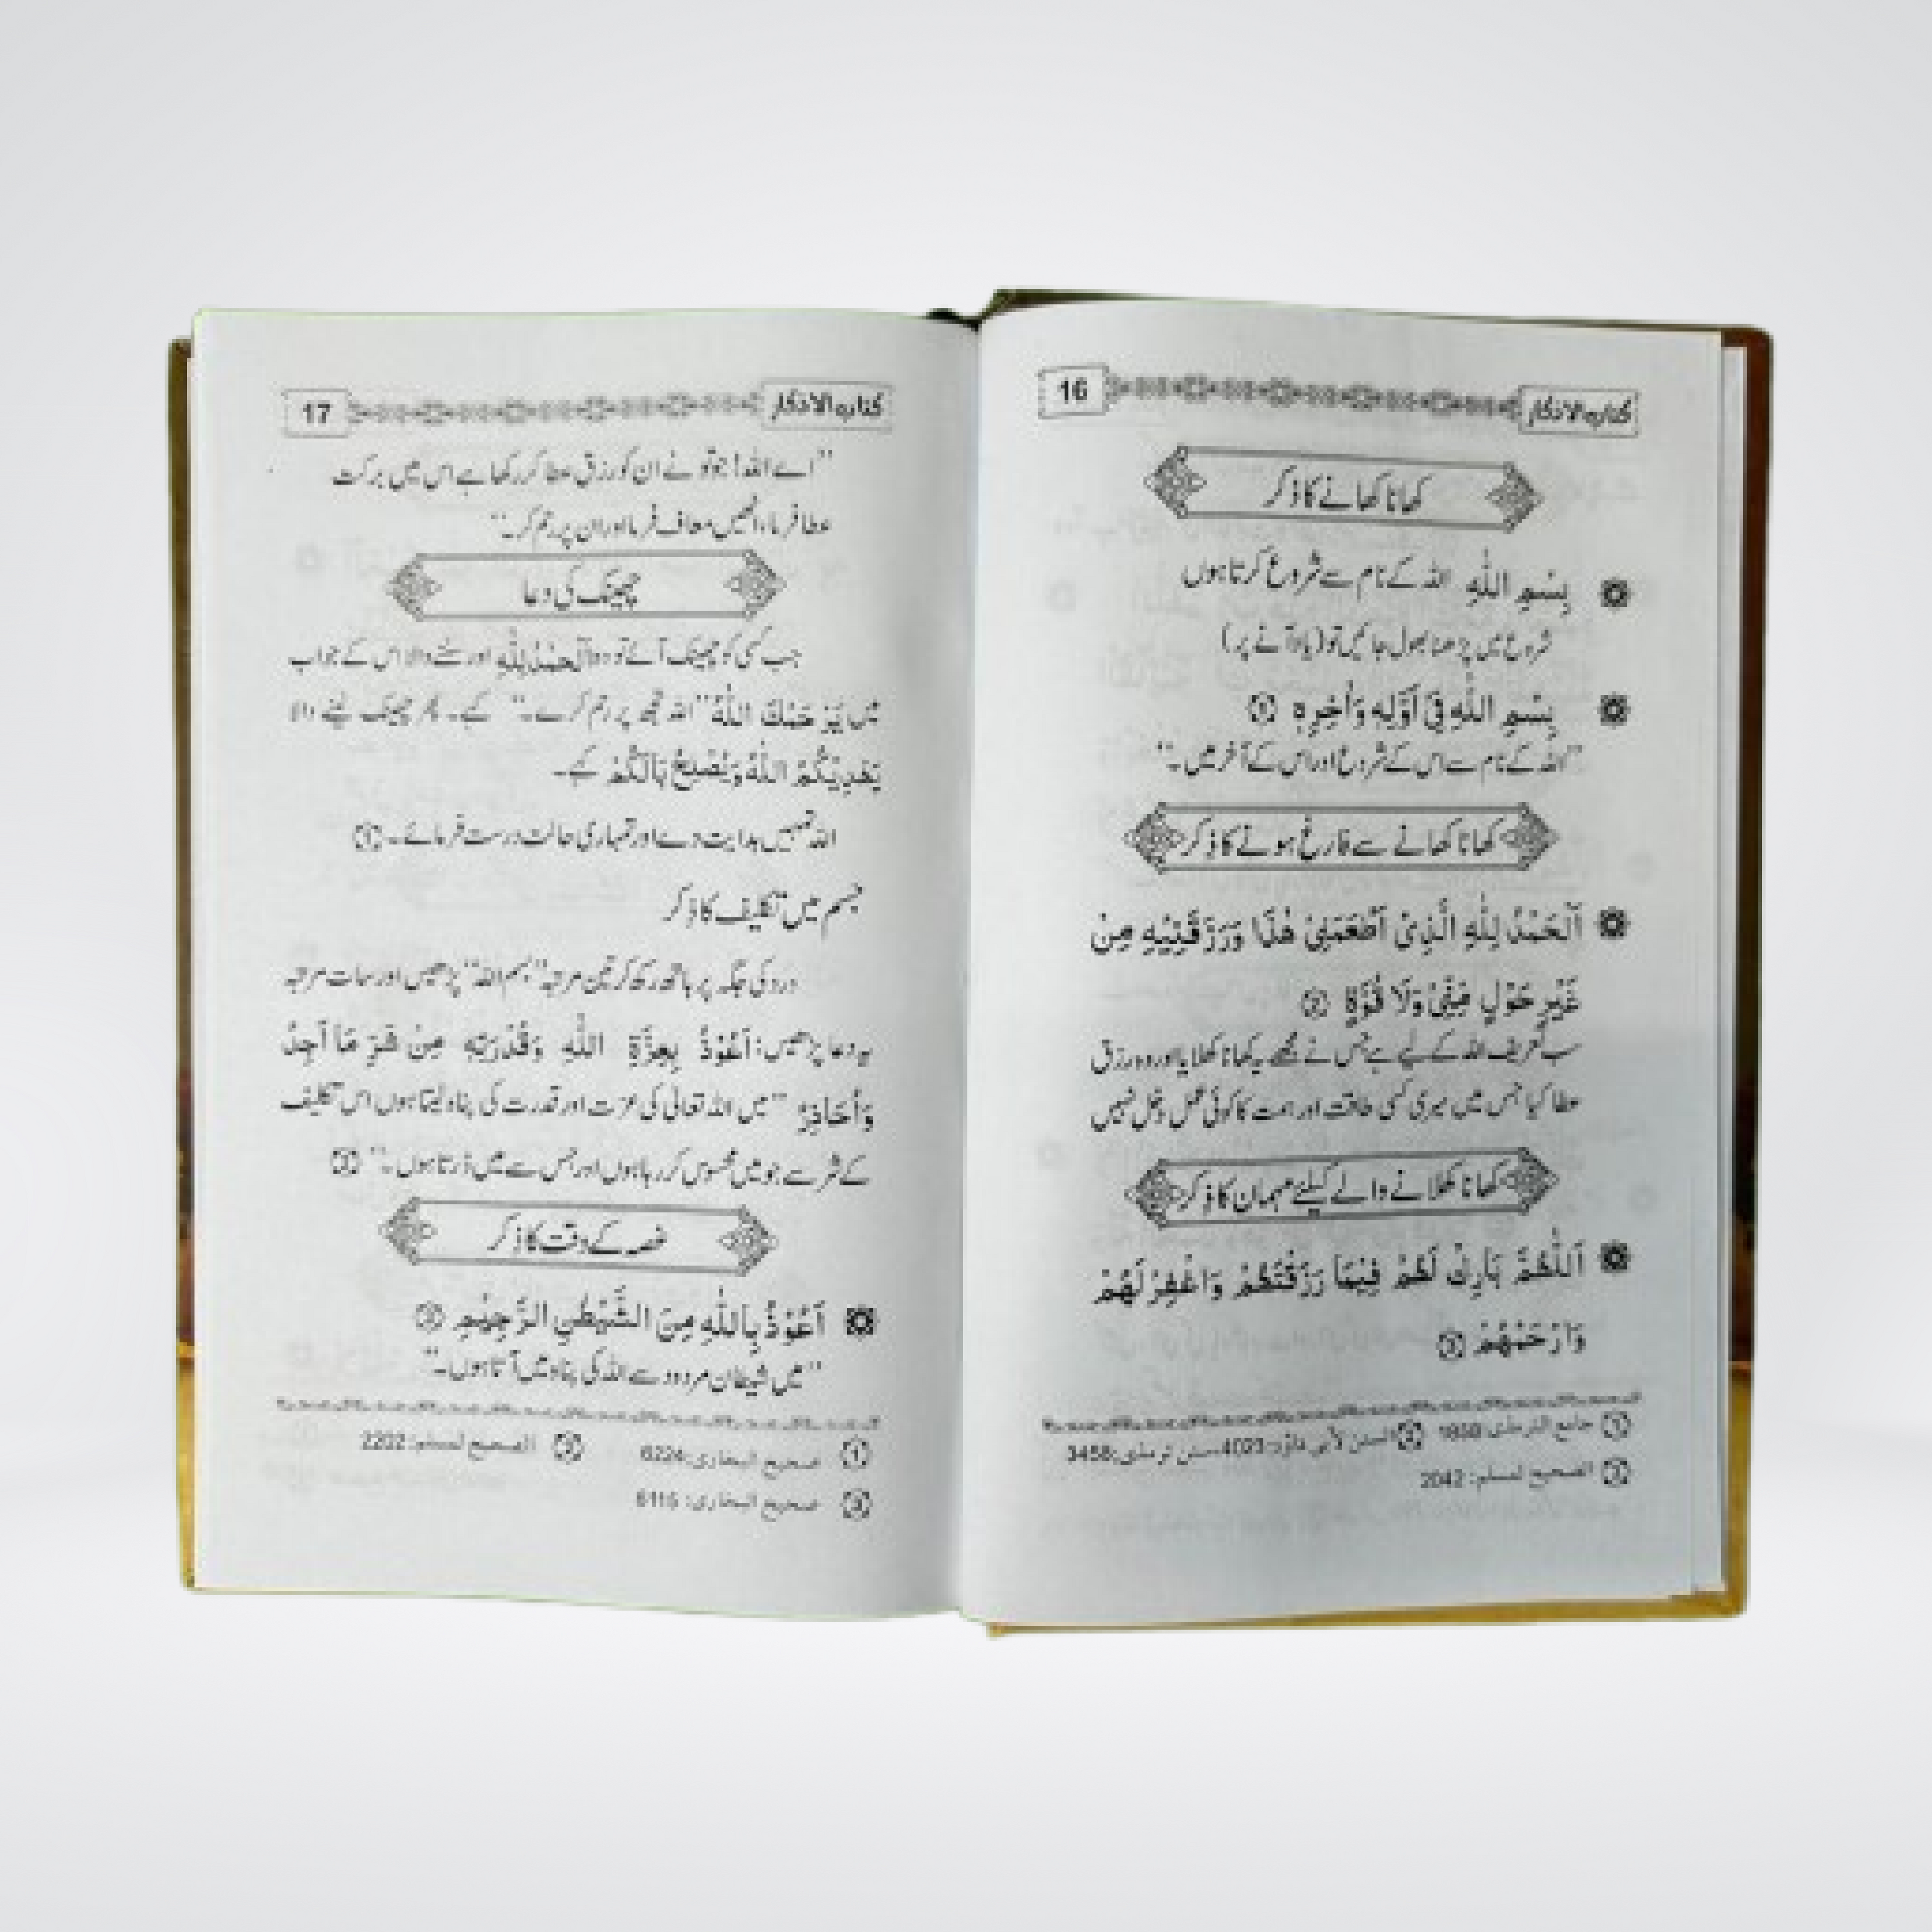 كتاب الاذكار 16
کھانا کھانے کا ذکر
بِسْمِ اللّٰهِ اللہ کے نام سے شروع کرتا ہوں
شروع میں پڑھنا بھول جائیں تو (یاد آنے پر)
بِسْمِ اللّٰهِ فِیْ اَوَّلِهٖ وَاٰخِرِهٖ ①
"اللہ کے نام سے اس کے شروع اور اس کے آخر میں۔"
کھانا کھانے سے فارغ ہونے کا ذکر
اَلْحَمْدُ لِلّٰهِ الَّذِیْ اَطْعَمَنِیْ هٰذَا وَرَزَقَنِیْهِ مِنْ
غَیْرِ حَوْلٍ مِّنِّیْ وَلَا قُوَّةٍ ②
سب تعریف اللہ کے لیے ہے جس نے مجھے یہ کھانا کھلایا اور وہ رزق
عطا کیا جس میں میری کسی طاقت اور ہمت کا کوئی عمل دخل نہیں
کھانا کھلانے والے کیلئے مہمان کا ذکر
اَللّٰهُمَّ بَارِكْ لَهُمْ فِیْمَا رَزَقْتَهُمْ وَاغْفِرْ لَهُمْ
وَارْحَمْهُمْ ③
① جامع الترمذی: 1858 ② السنن لأبی داؤد: 4023، سنن ترمذی: 3458
③ الصحیح لمسلم: 2042
كتاب الاذكار 17
"اے اللہ! جو تو نے ان کو رزق عطا کر رکھا ہے اس میں برکت
عطا فرما، انھیں معاف فرما اور ان پر رحم کر۔"
چھینک کی دعا
جب کسی کو چھینک آئے تو وہ اَلْحَمْدُ لِلّٰهِ اور سننے والا اس کے جواب
میں یَرْحَمُكَ اللّٰهُ "اللہ تجھ پر رحم کرے۔" کہے۔ پھر چھینک لینے والا
یَهْدِیْكُمُ اللّٰهُ وَیُصْلِحُ بَالَكُمْ کہے۔
اللہ تمہیں ہدایت دے اور تمہاری حالت درست فرمائے۔ ①
جسم میں تکلیف کا ذکر
درد کی جگہ پر ہاتھ رکھ کر تین مرتبہ "بسم اللہ" پڑھیں اور سات مرتبہ
یہ دعا پڑھیں: اَعُوْذُ بِعِزَّةِ اللّٰهِ وَقُدْرَتِهٖ مِنْ شَرِّ مَا اَجِدُ
وَاُحَاذِرُ "میں اللہ تعالی کی عزت اور قدرت کی پناہ لیتا ہوں اس تکلیف
کے شر سے جو میں محسوس کر رہا ہوں اور جس سے میں ڈرتا ہوں۔" ②
غصہ کے وقت کا ذکر
اَعُوْذُ بِاللّٰهِ مِنَ الشَّیْطٰنِ الرَّجِیْمِ ③
"میں شیطان مردود سے اللہ کی پناہ میں آتا ہوں۔"
① صحیح البخاری: 6224 ② الصحیح لمسلم: 2202
③ صحیح البخاری: 6115